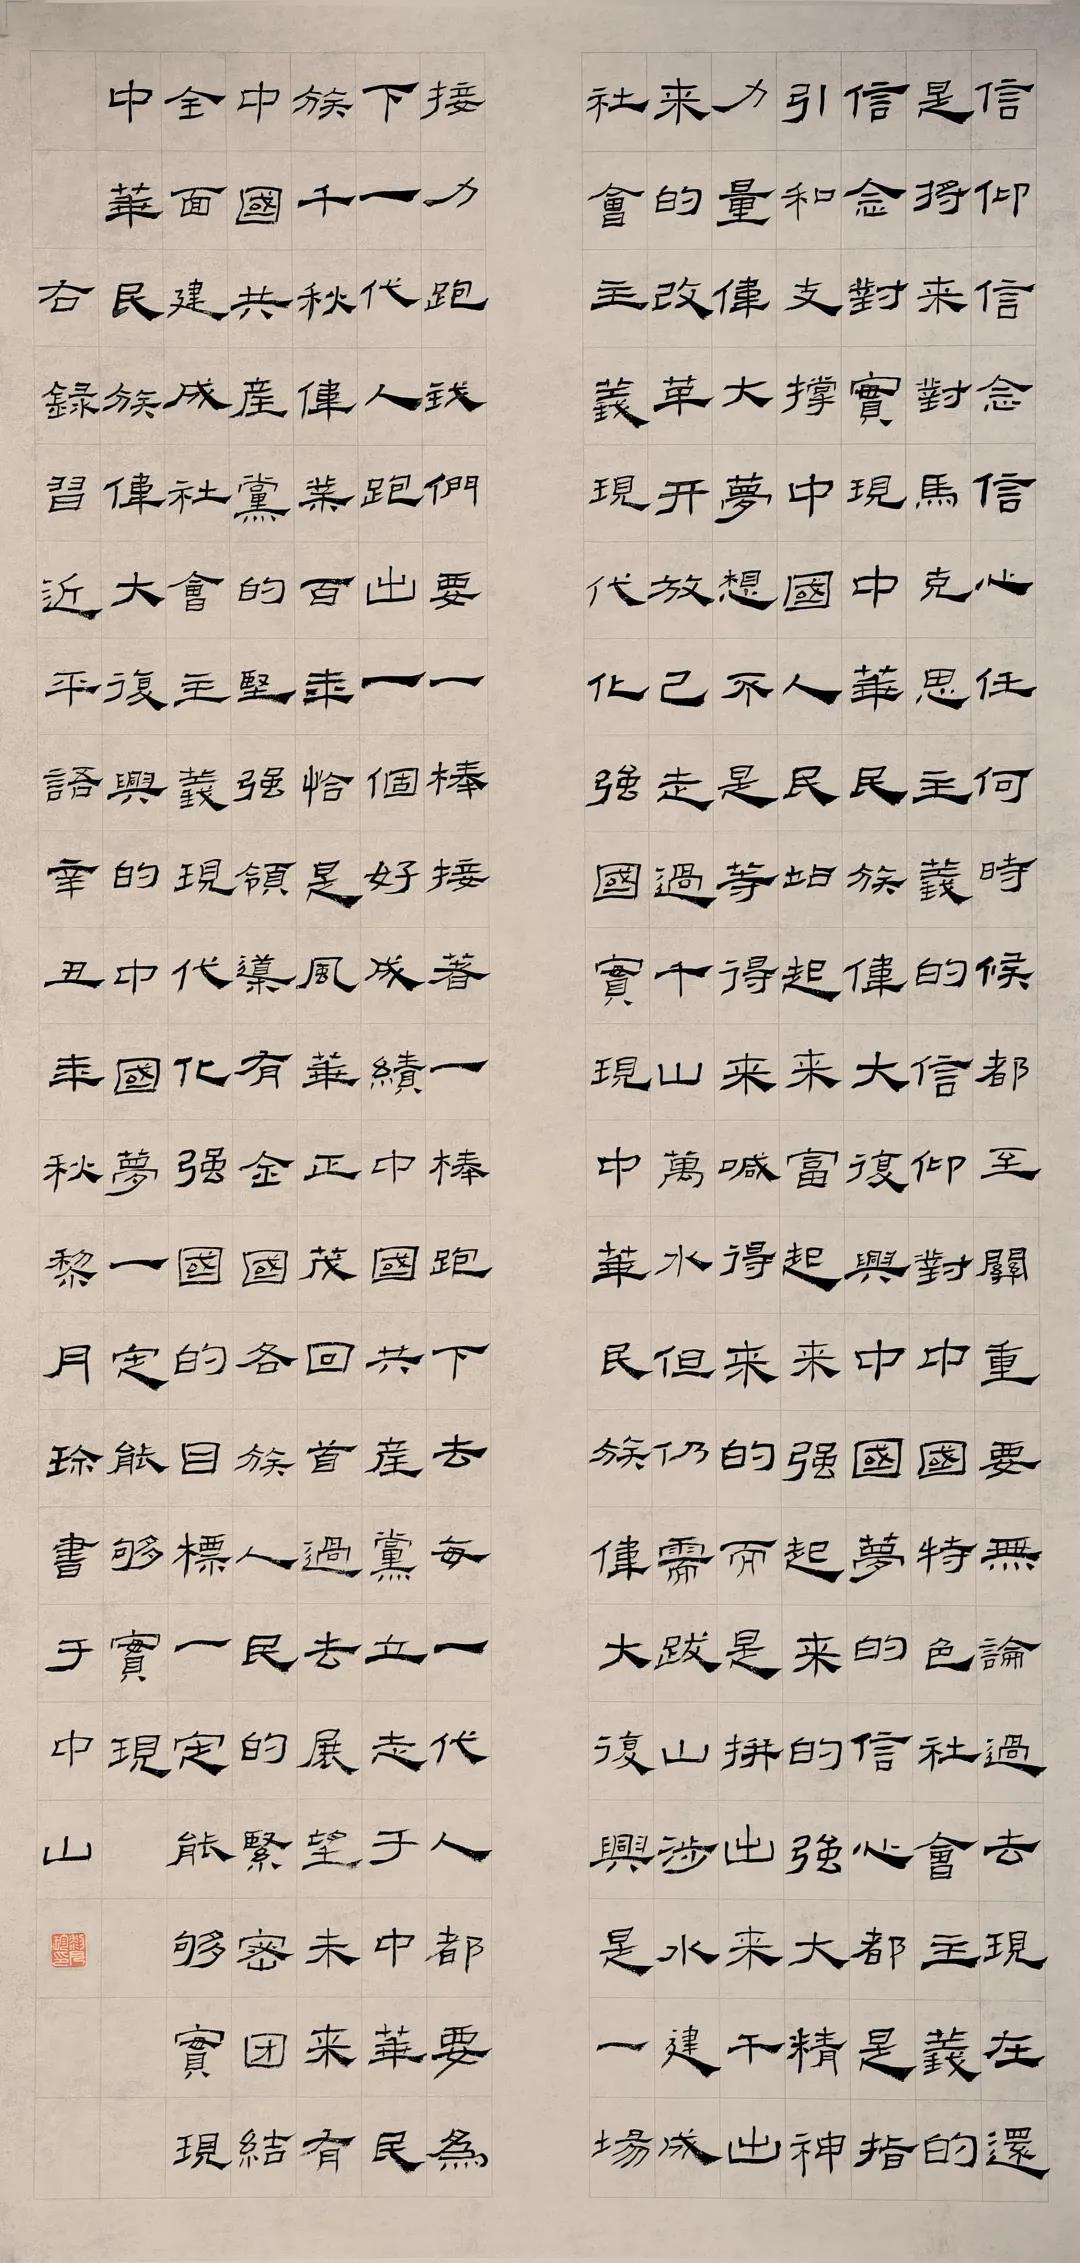 信仰信念信心任何時候都至關重要無論過去現在還
是将来對馬克思主義的信仰對中國特色社會主義的
信念對實現中華民族偉大復興中國夢的信心都是指
引和支撑中國人民站起来富起来强起来的強大精神
力量偉大夢想不是等得来喊得来的而是拼出来干出
来的改革开放已走過千山萬水但仍需跋山涉水建成
社會主義現代化強國實現中華民族偉大復興是一場
接力跑我們要一棒接着一棒跑下去每一代人都要為
下一代人跑出一個好成績中國共産黨立志于中華民
族千秋偉業百年恰是風華正茂回首過去展望未来有
中國共産黨的堅强領導有全國各族人民的緊密团結
全面建成社會主義現代化强國的目標一定能够實現
中華民族偉大復興的中國夢一定能够實現
右録習近平語辛丑年秋黎月書于中山